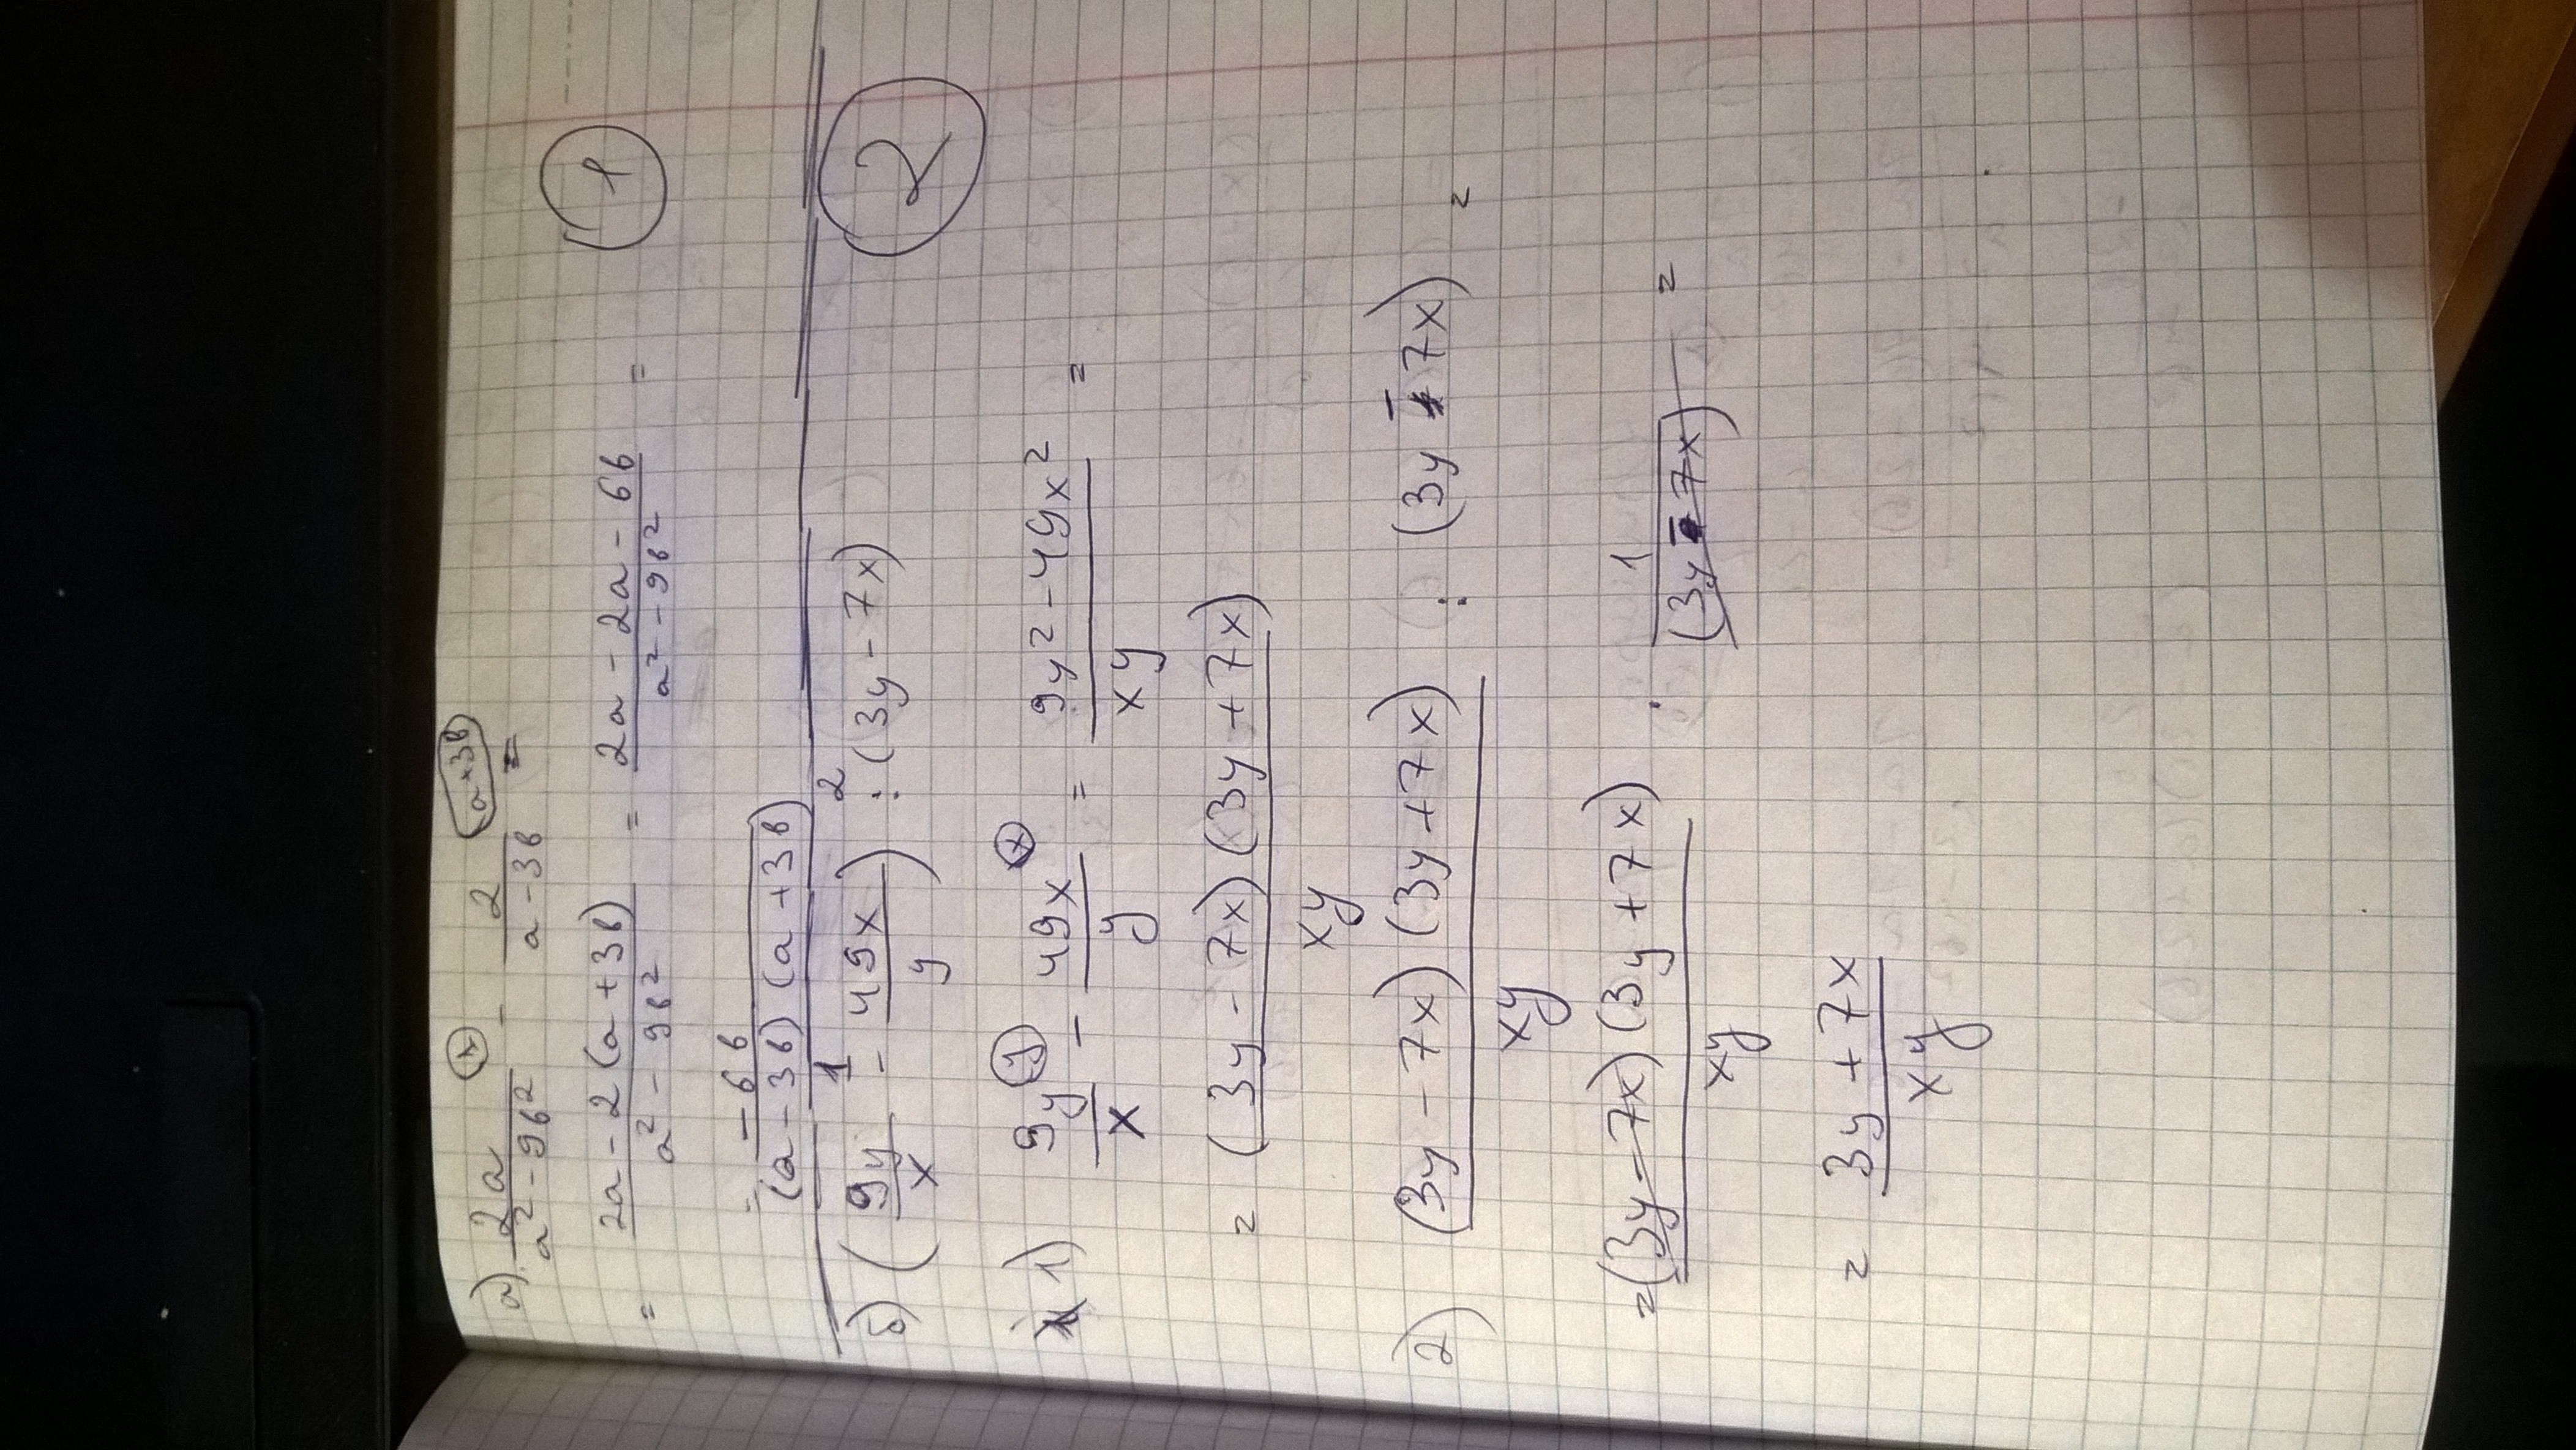 а) 2a/(a² - 9b²) (1) - 2/(a - 3b) (a+3b) =
= (2a - 2(a + 3b))/(a² - 9b²) = (2a - 2a - 6b)/(a² - 9b²) =
= -6b/((a - 3b)(a + 3b))
1
б) (9y/x -¹ 49x/y) :² (3y - 7x)
2
1) 9y/x (y) - 49x/y (x) = (9y² - 49x²)/xy =
= (3y - 7x)(3y + 7x)/xy
2) (3y - 7x)(3y + 7x)/xy : (3y - 7x) =
= (3y - 7x)(3y + 7x)/xy · 1/(3y - 7x) =
= (3y + 7x)/xy